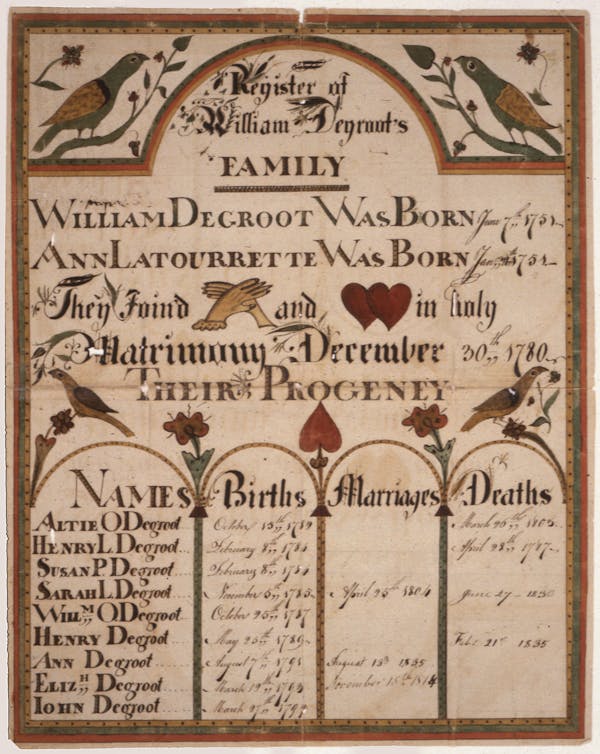 Register of
William Degroot's
FAMILY
WILLIAM DEGROOT WAS BORN June 7th 1751
ANN LATOURRETTE WAS BORN Jan 1754
They Joind and in holy
Matrimony December 30th 1780
THEIR PROGENEY
NAMES Births Marriages Deaths
ALTIE O Degroot October 13th 1782 March 1803
HENRY L Degroot February 8th 1784 April 28th 1787
SUSAN P. Degroot February 8th 1784
SARAH L Degroot November 5th 1785 April 25th 1804 June 27 - 1830
WILLM O Degroot October 25th 1787
HENRY Degroot May 25th 1789 Feb. 21st 1835
ANN Degroot August 7th 1791 August 13th 1835
ELIZH Degroot March 19th 1793 November 15th 1814
IOHN Degroot March 27th